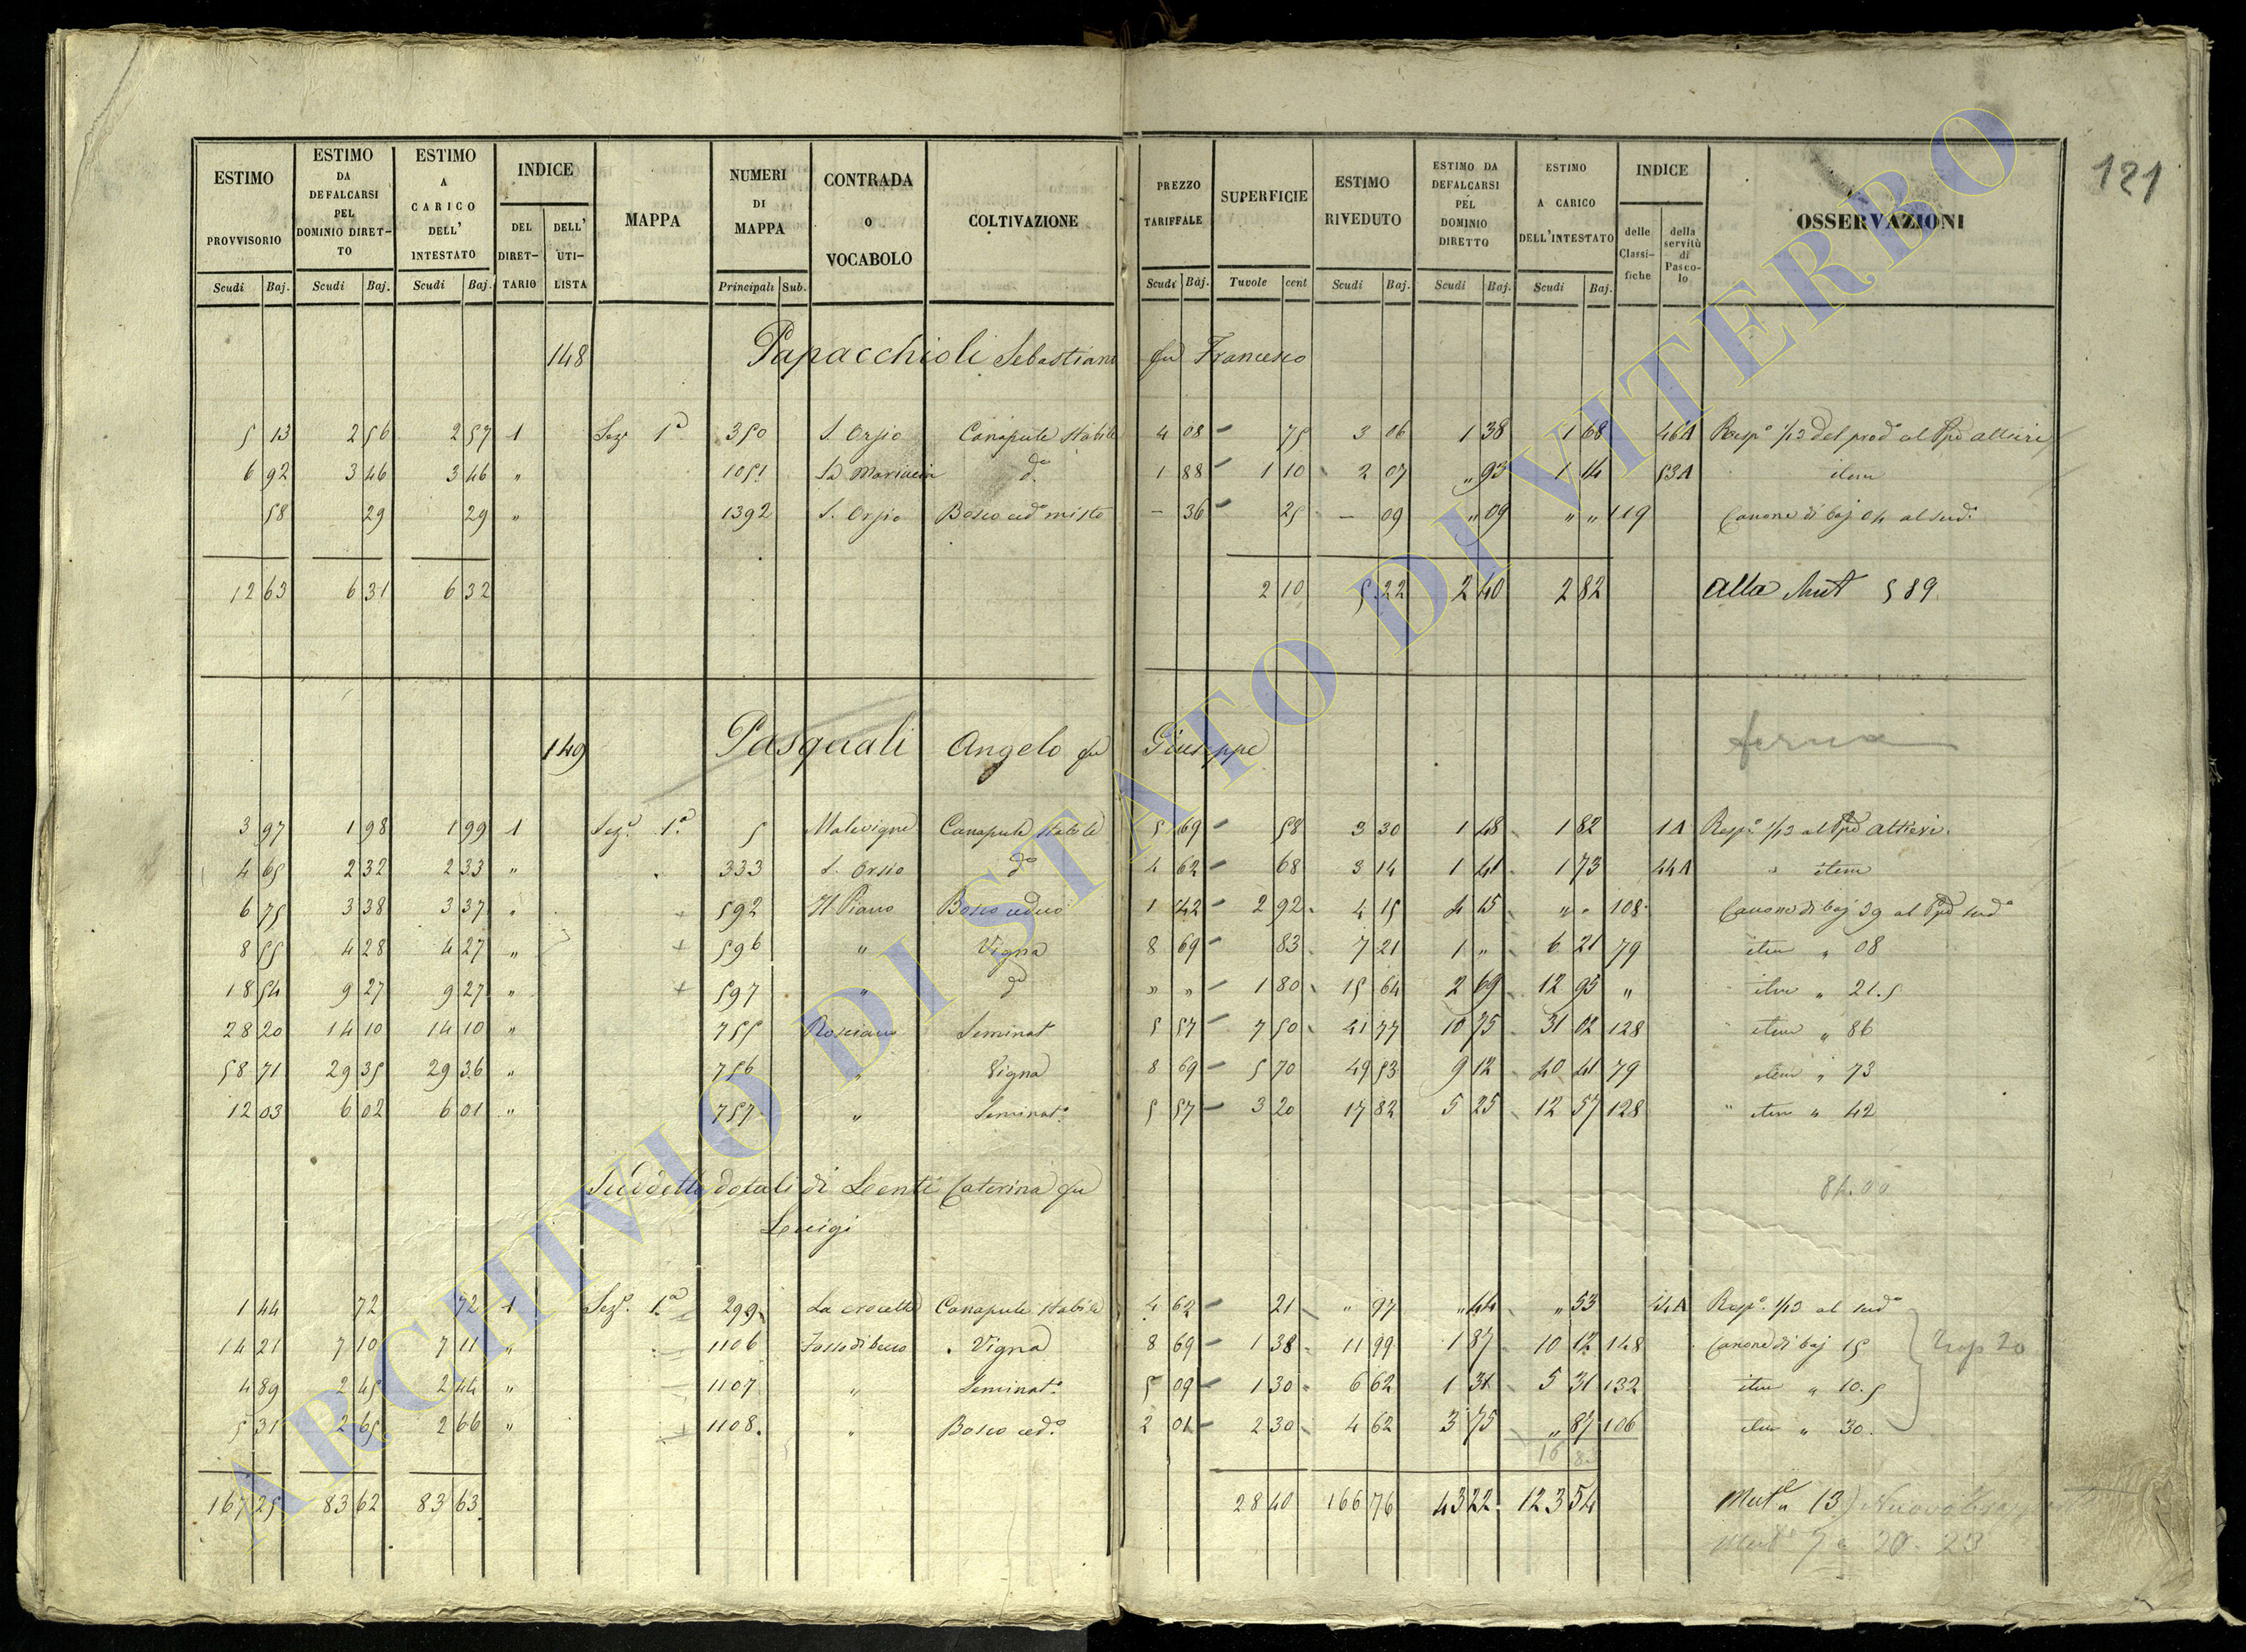 121
ESTIMO PROVVISORIO Scudi Baj.
ESTIMO DA DEFALCARSI PEL DOMINIO DIRETTO Scudi Baj.
ESTIMO A CARICO DELL' INTESTATO Scudi Baj.
INDICE DEL DIRETTARIO DELL' UTILISTA
MAPPA
NUMERI DI MAPPA Principali Sub.
CONTRADA O VOCABOLO
COLTIVAZIONE
PREZZO TARIFFALE Scudi Baj.
SUPERFICIE Tavole cent
ESTIMO RIVEDUTO Scudi Baj.
ESTIMO DA DEFALCARSI PEL DOMINIO DIRETTO Scudi Baj.
ESTIMO A CARICO DELL'INTESTATO Scudi Baj.
INDICE delle Classifiche della servitù di Pascolo
OSSERVAZIONI
148 Papacchioli Sebastiano fu Francesco
5 13 2 56 2 57 1 Sez. 1a 350 S. Orsio Canapule stabile 4 08 - 75 3 06 1 38 1 68 46A Risp. 1/12 del prod. al Ppe altieri
6 92 3 46 3 46 " 1051 La d. 1 88 - 1 10 2 07 " 93 1 14 53A item
58 29 29 " 1392 S. Orsio Bosco ced. misto - 36 - 25 - 09 " 09 " " 119 Canone di baj 04 al sud.
12 63 6 31 6 32 2 10 5 22 2 40 2 82 alla Mut 589
149 Pasquali Angelo fu Giuseppe
3 97 1 98 1 99 1 Sez. 1a 5 Malevigne Canapule stabile 5 69 - 58 3 30 1 48 1 82 1A Risp. 1/12 al Ppe altieri
4 65 2 32 2 33 " 333 S. Orsio do 4 62 - 68 3 14 1 41 1 73 44A " item
6 75 3 38 3 37 " + 592 Il Piano Bosco ceduo 1 42 - 2 92 4 15 4 15 " " 108 Canone di baj 39 al Ppe sud.
8 55 4 28 4 27 " + 596 " Vigna 8 69 - 83 7 21 1 " 6 21 79 item " 08
18 54 9 27 9 27 " + 597 " do " " - 1 80 15 64 2 69 12 95 " item " 21.5
28 20 14 10 14 10 " 755 Rosciano Seminat 5 57 - 7 50 41 77 10 75 31 02 128 item " 86
58 71 29 35 29 36 " 756 " Vigna 8 69 - 5 70 49 53 9 12 40 41 79 item " 73
12 03 6 02 6 01 " 757 " Seminat. 5 57 - 3 20 17 82 5 25 12 57 128 " item " 42
Suddetto dotali di Lenti Caterina fu
Luigi
1 44 72 72 1 Sez. 1a 299 La crocetta Canapule stabile 4 62 - 21 " 97 " 44 " 53 44A Risp. 1/12 al sud.
14 21 7 10 7 11 " 1106 Vigna 8 69 - 1 38 11 99 1 87 10 12 148 Canone di baj 15
4 89 2 45 2 44 " 1107 " Seminat. 5 09 - 1 30 6 62 1 31 5 31 132 item " 10.5
5 31 2 65 2 66 " + 1108 " Bosco ced. 2 01 - 2 30 4 62 3 75 " 87 106 item " 30
167 25 83 62 83 63 28 40 166 76 43 22 123 54 Mut. 13
ARCHIVIO DI STATO DI VITERBO